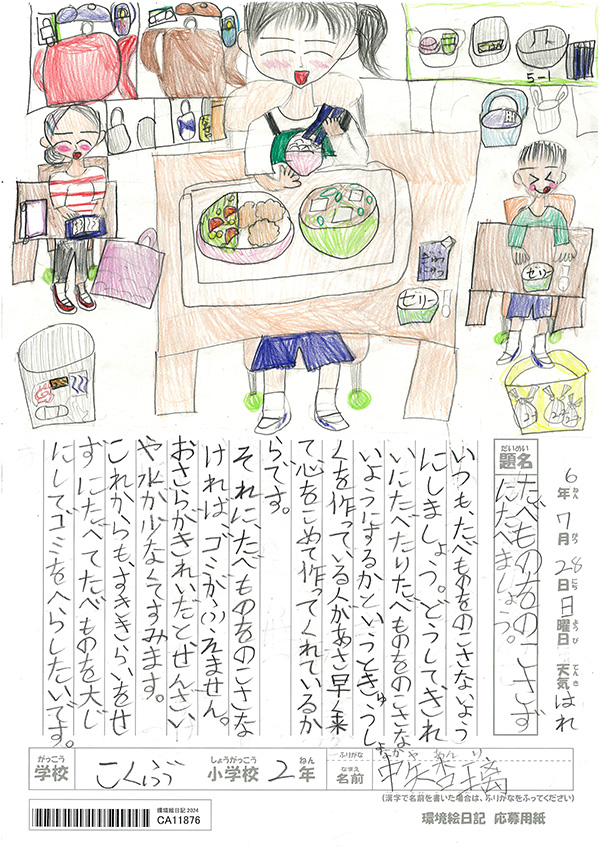 5-1
ぎゅう
にゅう
ゼリー
ゼリー
6年7月28日日曜日 天気はれ
ねん がつ にち ようび てんき
だいめい
題名
たべものをのこさず
にたべましょう。
いつも、たべものをのこさないよう
にしましょう。どうして、きれ
いにたべたりたべものをのこさな
いようにするかというとき、ゅうしょ
くを作っている人があさ早く来
て心をこめて作ってくれているか
らです。
それに、たべものをのこさな
ければ、ゴミがふえません。
おさらがきれいだとせんざい
や水が少なくてすみます。
これからも、すききらいをせ
ずにたべてたべものを大じ
にしてゴミをへらしたいです。
がっこう しょうがっこう ねん
学校 こくぶ 小学校 2年
ふりがな
なまえ
名前
(漢字で名前を書いた場合は、ふりがなをふってください)
環境絵日記2024
CA11876
環境絵日記 応募用紙